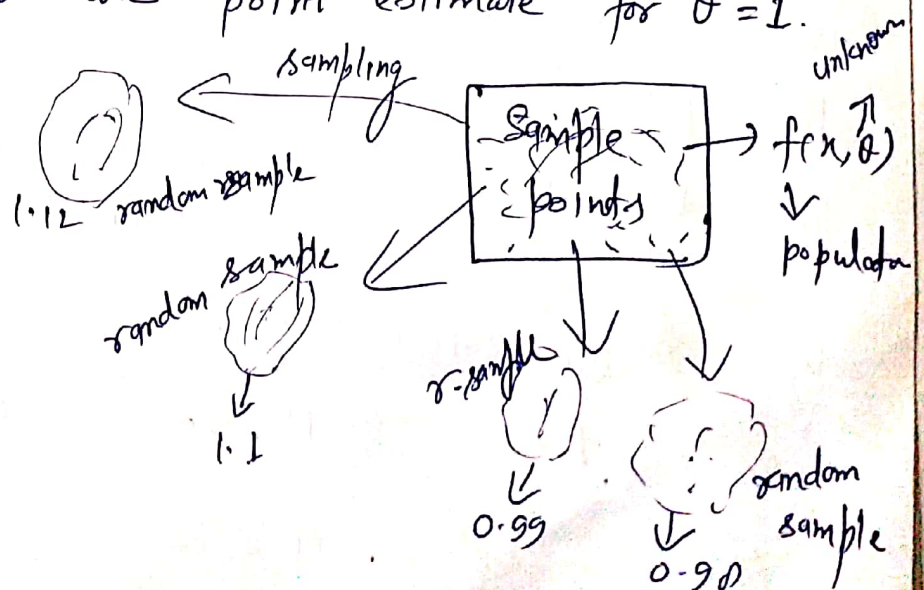 point estimate for θ = 1.
sampling
unknown
Sample
points
f(x, θ)
populatn
1.12 random sample
random sample
1.1
r-sample
0.99
random
sample
0.98